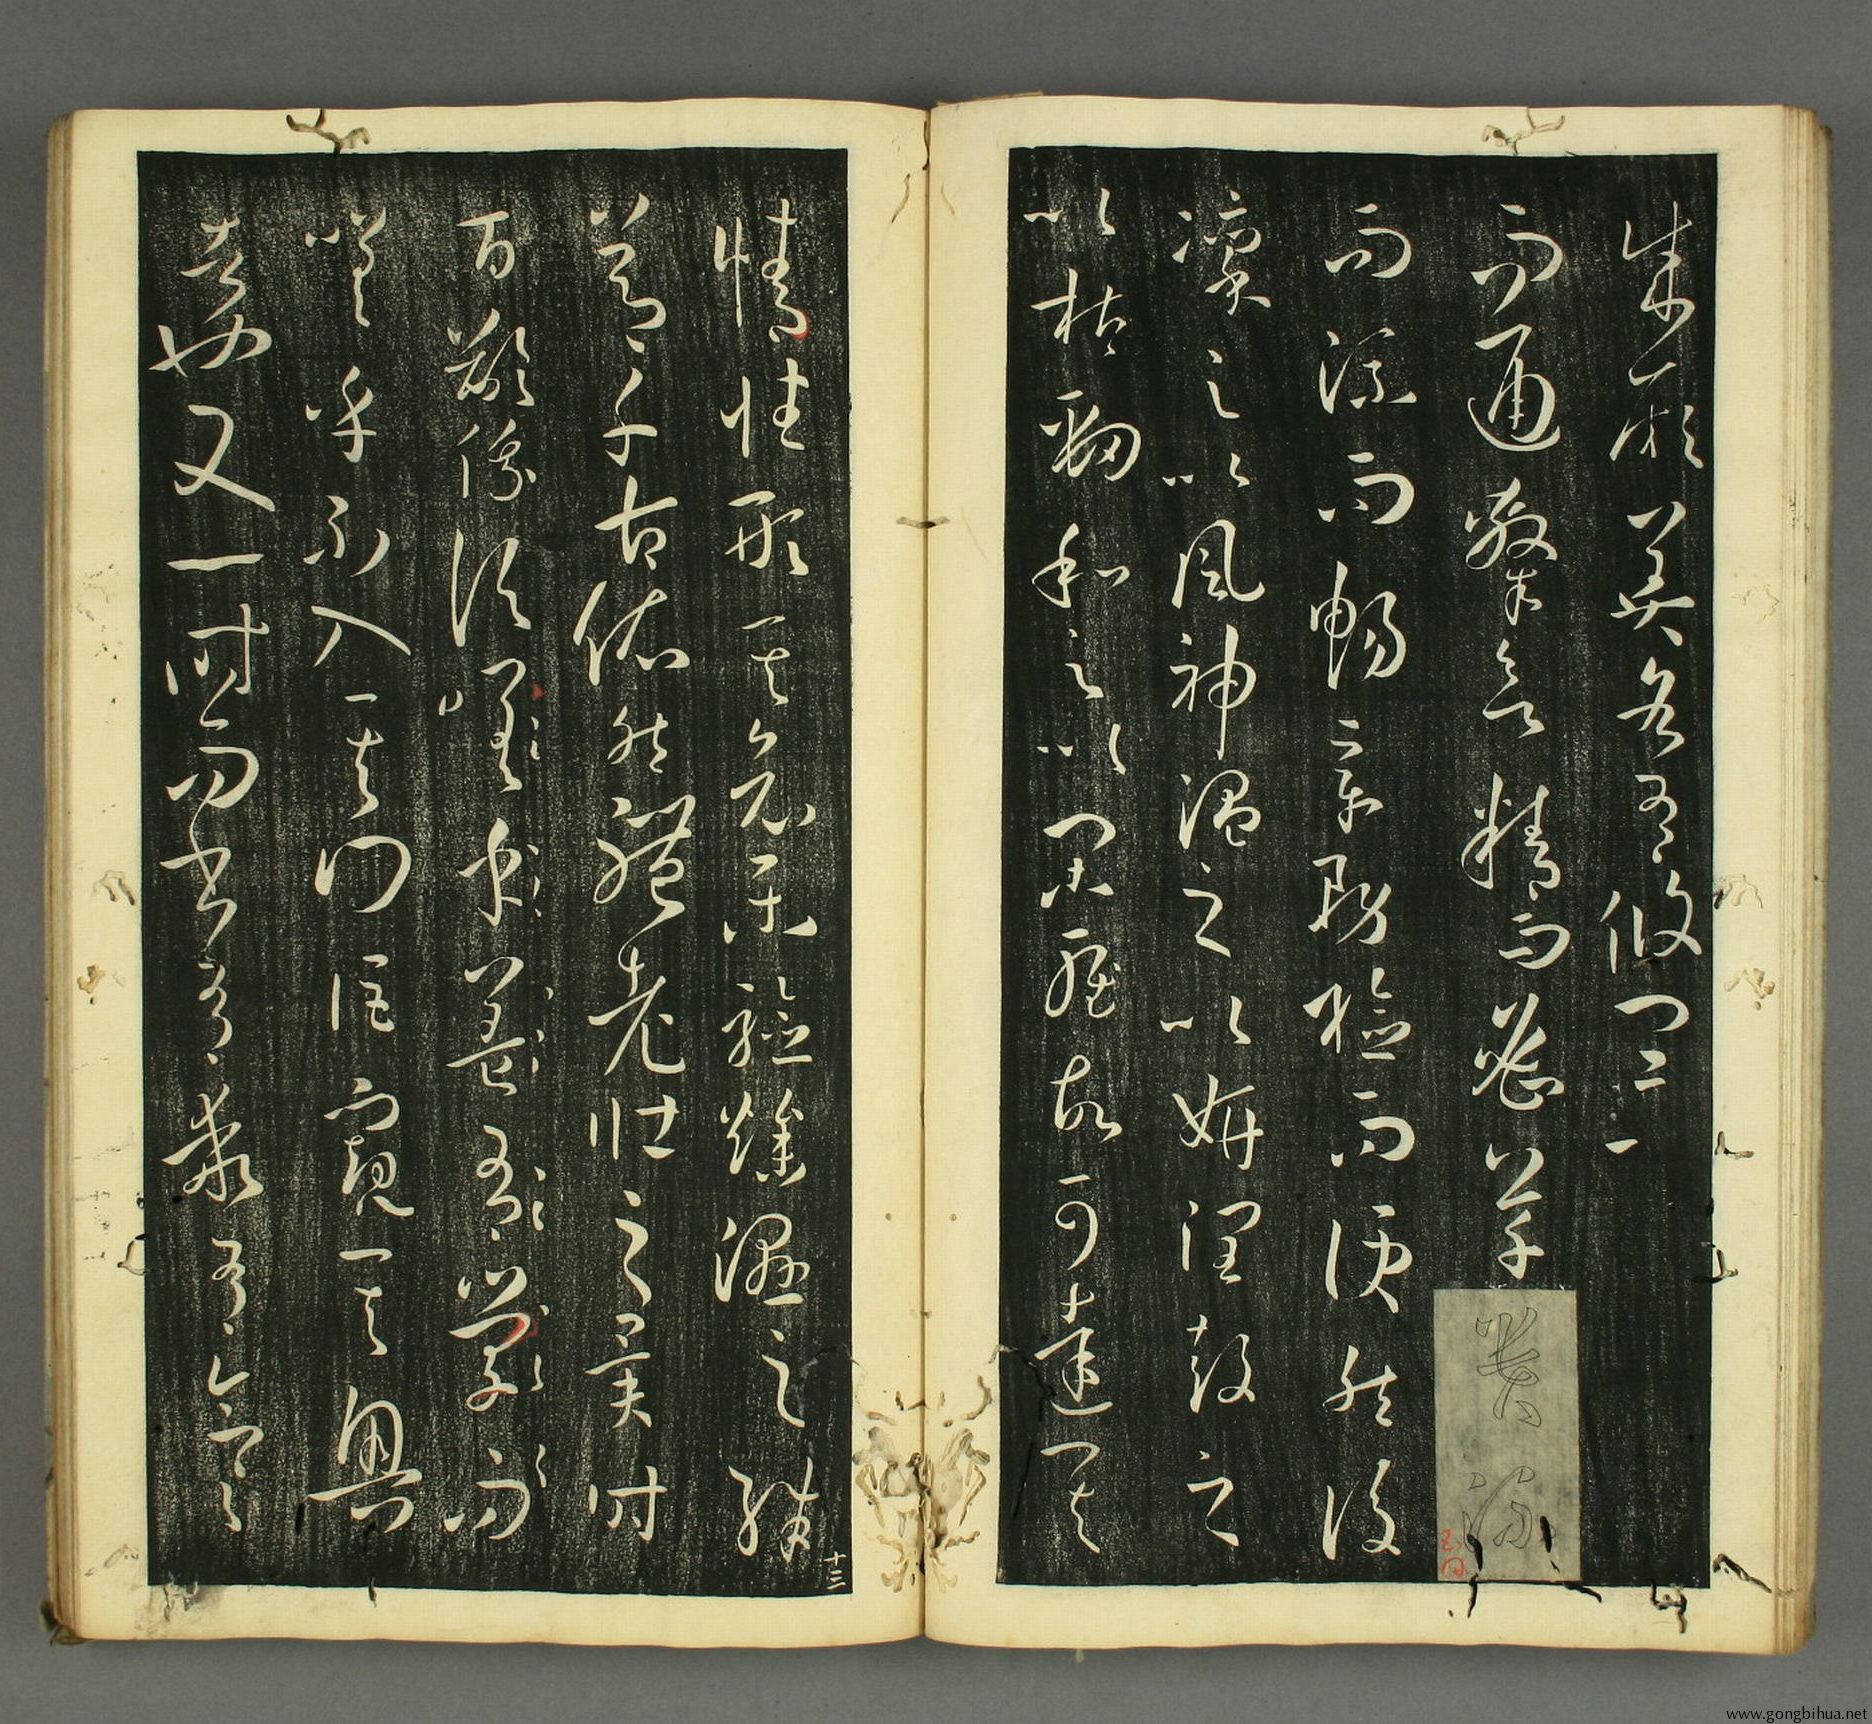 成厥美各有攸宜
而通隸欲精而密草
貴流
而流而暢章務檢而便然後
凜之以風神溫之以妍潤鼓之
以枯勁和之以閑雅故可達其
情性形其哀樂驗燥濕之殊
節千古依然體老壯之異時
百齡俄頃嗟乎
嗟乎不入其門詎窺其奧
者也又一時而書有乖有合合
十三
www.gongbihua.net